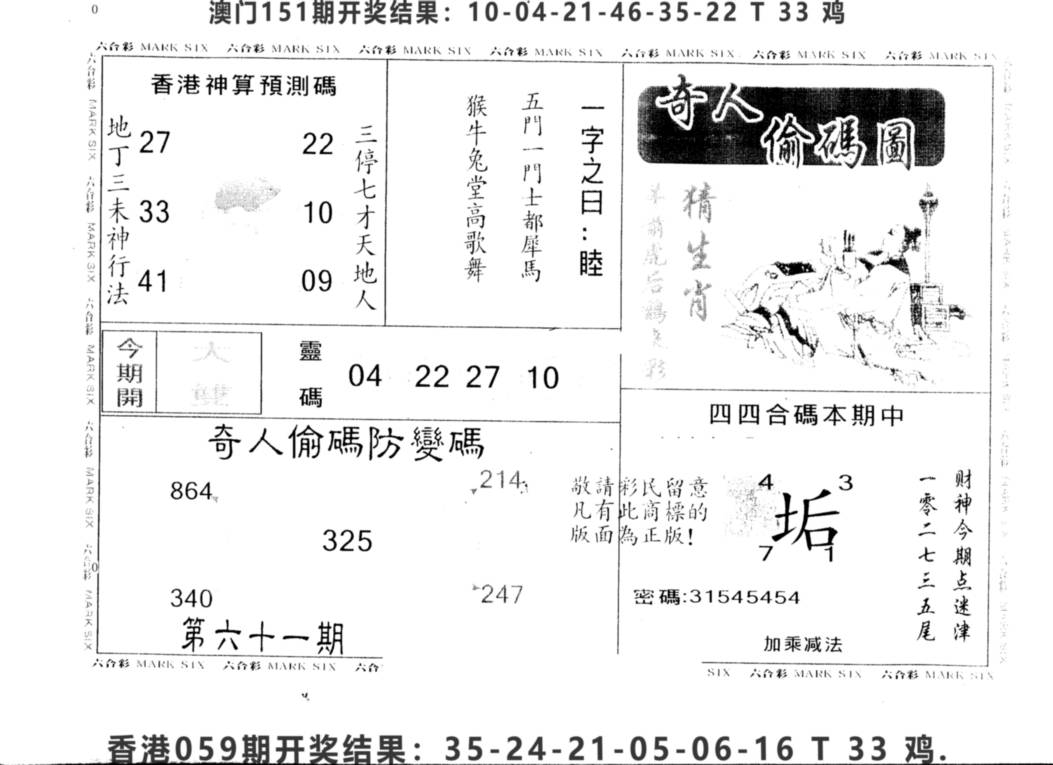 0
澳门151期开奖结果：10-04-21-46-35-22 T 33 鸡
六合彩 MARK SIX 六合彩 MARK SIX 六合彩 MARK SIX 六合彩 MARK SIX 六合彩 MARK SIX 六合彩 MARK SIX 六合彩 MARK SIX
香港神算預測碼
地丁三未神行法
27 22
33 10
41 09
三停七才天地人
一字之曰：睦
五門一門士都犀馬
猴牛兔堂高歌舞
奇人偷碼圖
猜生肖
今期開
大
雙
靈碼
04 22 27 10
四四合碼本期中
奇人偷碼防變碼
864 214
325
340 247
第六十一期
敬請彩民留意
凡有此商標的
版面為正版!
4 3
垢
7 1
密碼:31545454
加乘减法
财神今期点迷津
一零二七三五尾
六合彩 MARK SIX 六合彩 MARK SIX 六合
SIX 六合彩 MARK SIX 六合彩 MARK SIX
香港059期开奖结果：35-24-21-05-06-16 T 33 鸡.